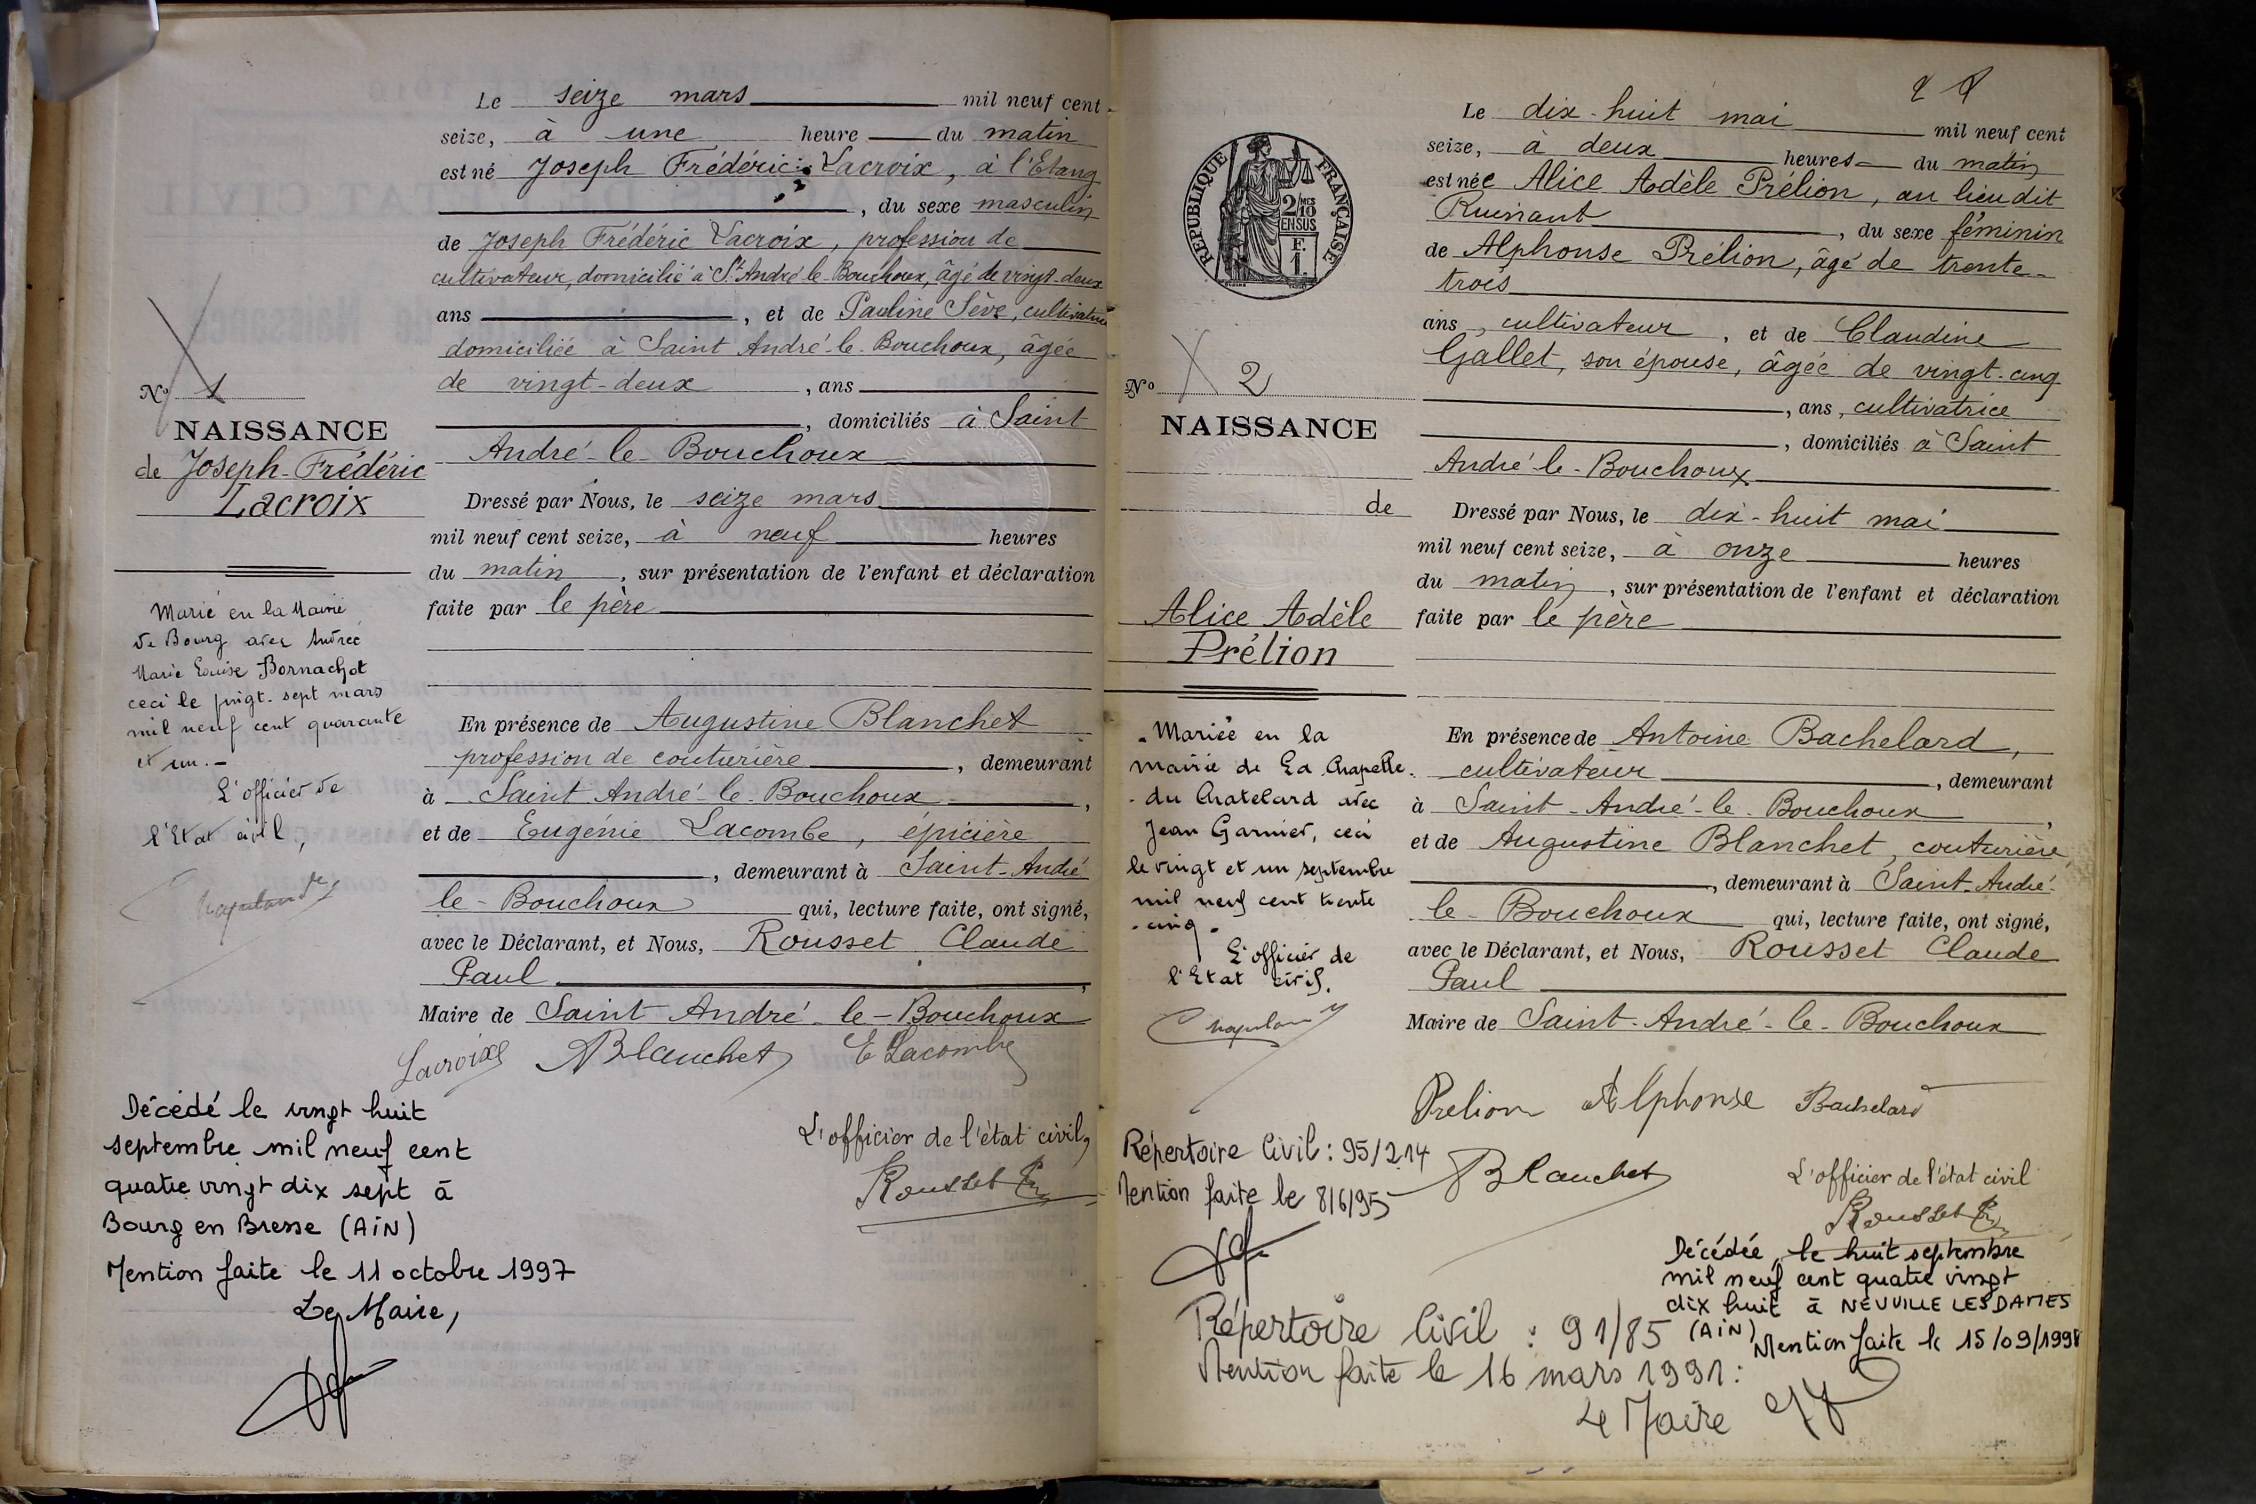 Le seize mars mil neuf cent
seize, à une heure du matin
est né Joseph Frédéric Lacroix, à l'Etang
, du sexe masculin
de Joseph Frédéric Lacroix, profession de
cultivateur, domicilié à St André le Bouchoux, âgé de vingt-deux
ans , et de Pauline Sève, cultivatrice
domiciliée à Saint André-le-Bouchoux, âgée
de vingt-deux , ans
, domiciliés à Saint
André-le-Bouchoux
Dressé par Nous, le seize mars
mil neuf cent seize, à neuf heures
du matin , sur présentation de l'enfant et déclaration
faite par le père
En présence de Augustine Blanchet
profession de couturière , demeurant
à Saint André-le-Bouchoux ,
et de Eugénie Lacombe, épicière
, demeurant à Saint-André
le-Bouchoux qui, lecture faite, ont signé,
avec le Déclarant, et Nous, Rousset Claude
Paul ,
Maire de Saint André-le-Bouchoux
Lacroix ABlanchet E Lacombe
L'officier de l'état civil,
Rousset
No 1
NAISSANCE
de Joseph-Frédéric
Lacroix
Marié en la Mairie
de Bourg avec Andrée
Marie Louise Bornachot
ceci le vingt-sept mars
mil neuf cent quarante
et un.-
L'officier de
l'Etat civil,
Décédé le vingt huit
septembre mil neuf cent
quatre vingt dix sept à
Bourg en Bresse (AIN)
Mention faite le 11 octobre 1997
Le Maire,
2
Le dix-huit mai mil neuf cent
seize, à deux heures du matin
est née Alice Adèle Prélion, au lieu dit
Ruinant , du sexe féminin
de Alphonse Prélion, âgé de trente-
trois
ans, cultivateur , et de Claudine
Gallet, son épouse, âgée de vingt-cinq
, ans, cultivatrice
, domiciliés à Saint
André-le-Bouchoux
Dressé par Nous, le dix-huit mai
mil neuf cent seize, à onze heures
du matin , sur présentation de l'enfant et déclaration
faite par le père
En présence de Antoine Bachelard,
cultivateur , demeurant
à Saint-André-le-Bouchoux ,
et de Augustine Blanchet, couturière,
, demeurant à Saint-André-
le-Bouchoux qui, lecture faite, ont signé,
avec le Déclarant, et Nous, Rousset Claude
Paul
Maire de Saint-André-le-Bouchoux
Prelion Alphonse Bachelard
ABlanchet
L'officier de l'état civil
Rousset
REPUBLIQUE FRANÇAISE
2/10 MES
EN SUS
F.
1.
No 2
NAISSANCE
de
Alice Adèle
Prélion
Mariée en la
mairie de La Chapelle-
du Chatelard avec
Jean Garnier, ceci
le vingt et un septembre
mil neuf cent trente
-cinq.
L'officier de
l'Etat civil.
Répertoire Civil : 95/214
Mention faite le 8/6/95
Décédée, le huit septembre
mil neuf cent quatre vingt
dix huit à NEUVILLE LES DAMES
(AIN) Mention faite le 15/09/1998
Répertoire Civil : 91/85
Mention faite le 16 mars 1991 :
Le Maire